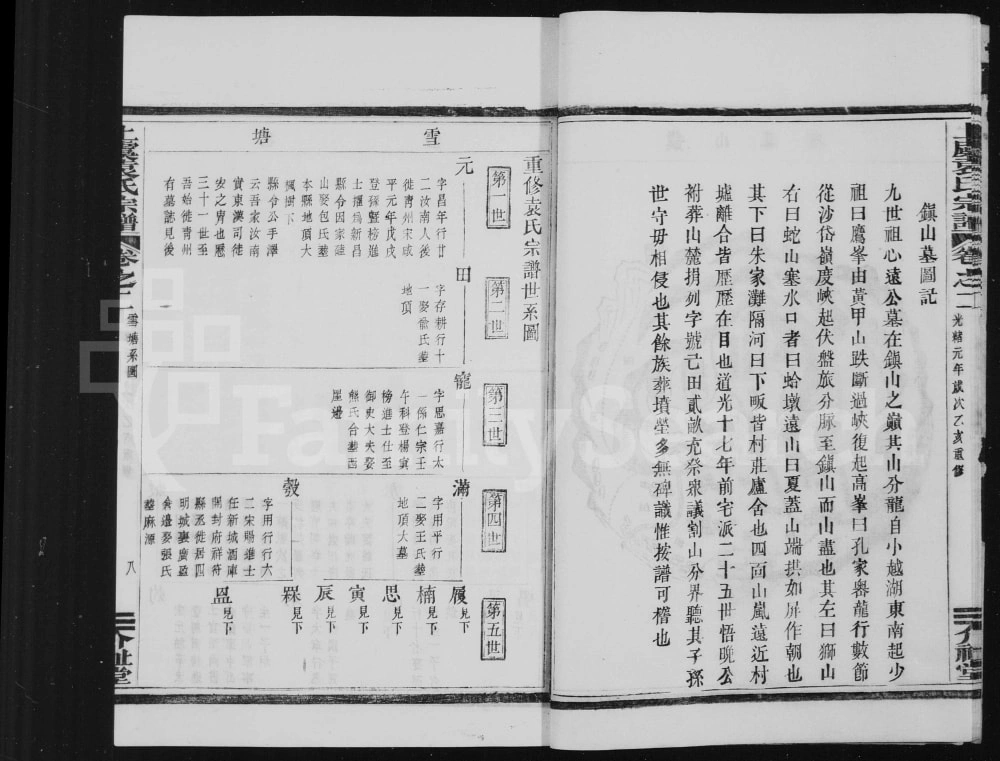 鎮山墓圖記
九世祖心遠公墓在鎮山之巔其山分龍自小越湖東南起少
祖曰鷹峯由黃甲山跌斷過峽復起高峯曰孔家嶴龍行數節
從沙岱嶺度峽起伏盤旅分脈至鎮山而山盡也其左曰獅山
右曰蛇山塞水口者曰蛤墩遠山曰夏蓋山端拱如屏作朝也
其下曰朱家灘隔河曰下畈皆村莊廬舍也四面山嵐遠近村
墟離合皆歷歷在目也道光十七年前宅派二十五世悟晚公
祔葬山麓捐列字號己田貳畝充祭衆議割山分界聽其子孫
世守毋相侵也其餘族葬墳塋多無碑識惟按譜可稽也
上虞袁氏宗譜
卷之二
光緒元年歲次乙亥重修
介祉堂
重修袁氏宗譜世系圖
雪塘
第一世
第二世
第三世
第四世
第五世
元
字昌年行廿
二汝南人後
徙青州宋咸
平元年戊戌
登孫暨榜進
士擢爲新昌
縣令因家薩
山娶包氏墓
本縣地頂大
楓樹下
縣令公手澤
云吾家汝南
實東漢司徒
安之胄也歷
三十一世至
吾始徙青州
有墓誌見後
田
字存耕行十
一娶俞氏墓
地頂
寵
字思嘉行太
一係仁宗壬
午科登楊寘
榜進士仕至
御史大夫娶
熊氏合墓西
崖邊
滿
字用平行
二娶王氏墓
地頂大墓
轂
字用行行六
二宋賜進士
任新城酒庫
開封府祥符
縣丞徙居四
明城婁廣盈
倉邊娶張氏
墓麻潭
履見下
楠見下
思見下
寅見下
辰見下
槑見下
盈見下
上虞袁氏宗譜
卷之二
雪塘系圖
八
介祉堂
FamilySearch